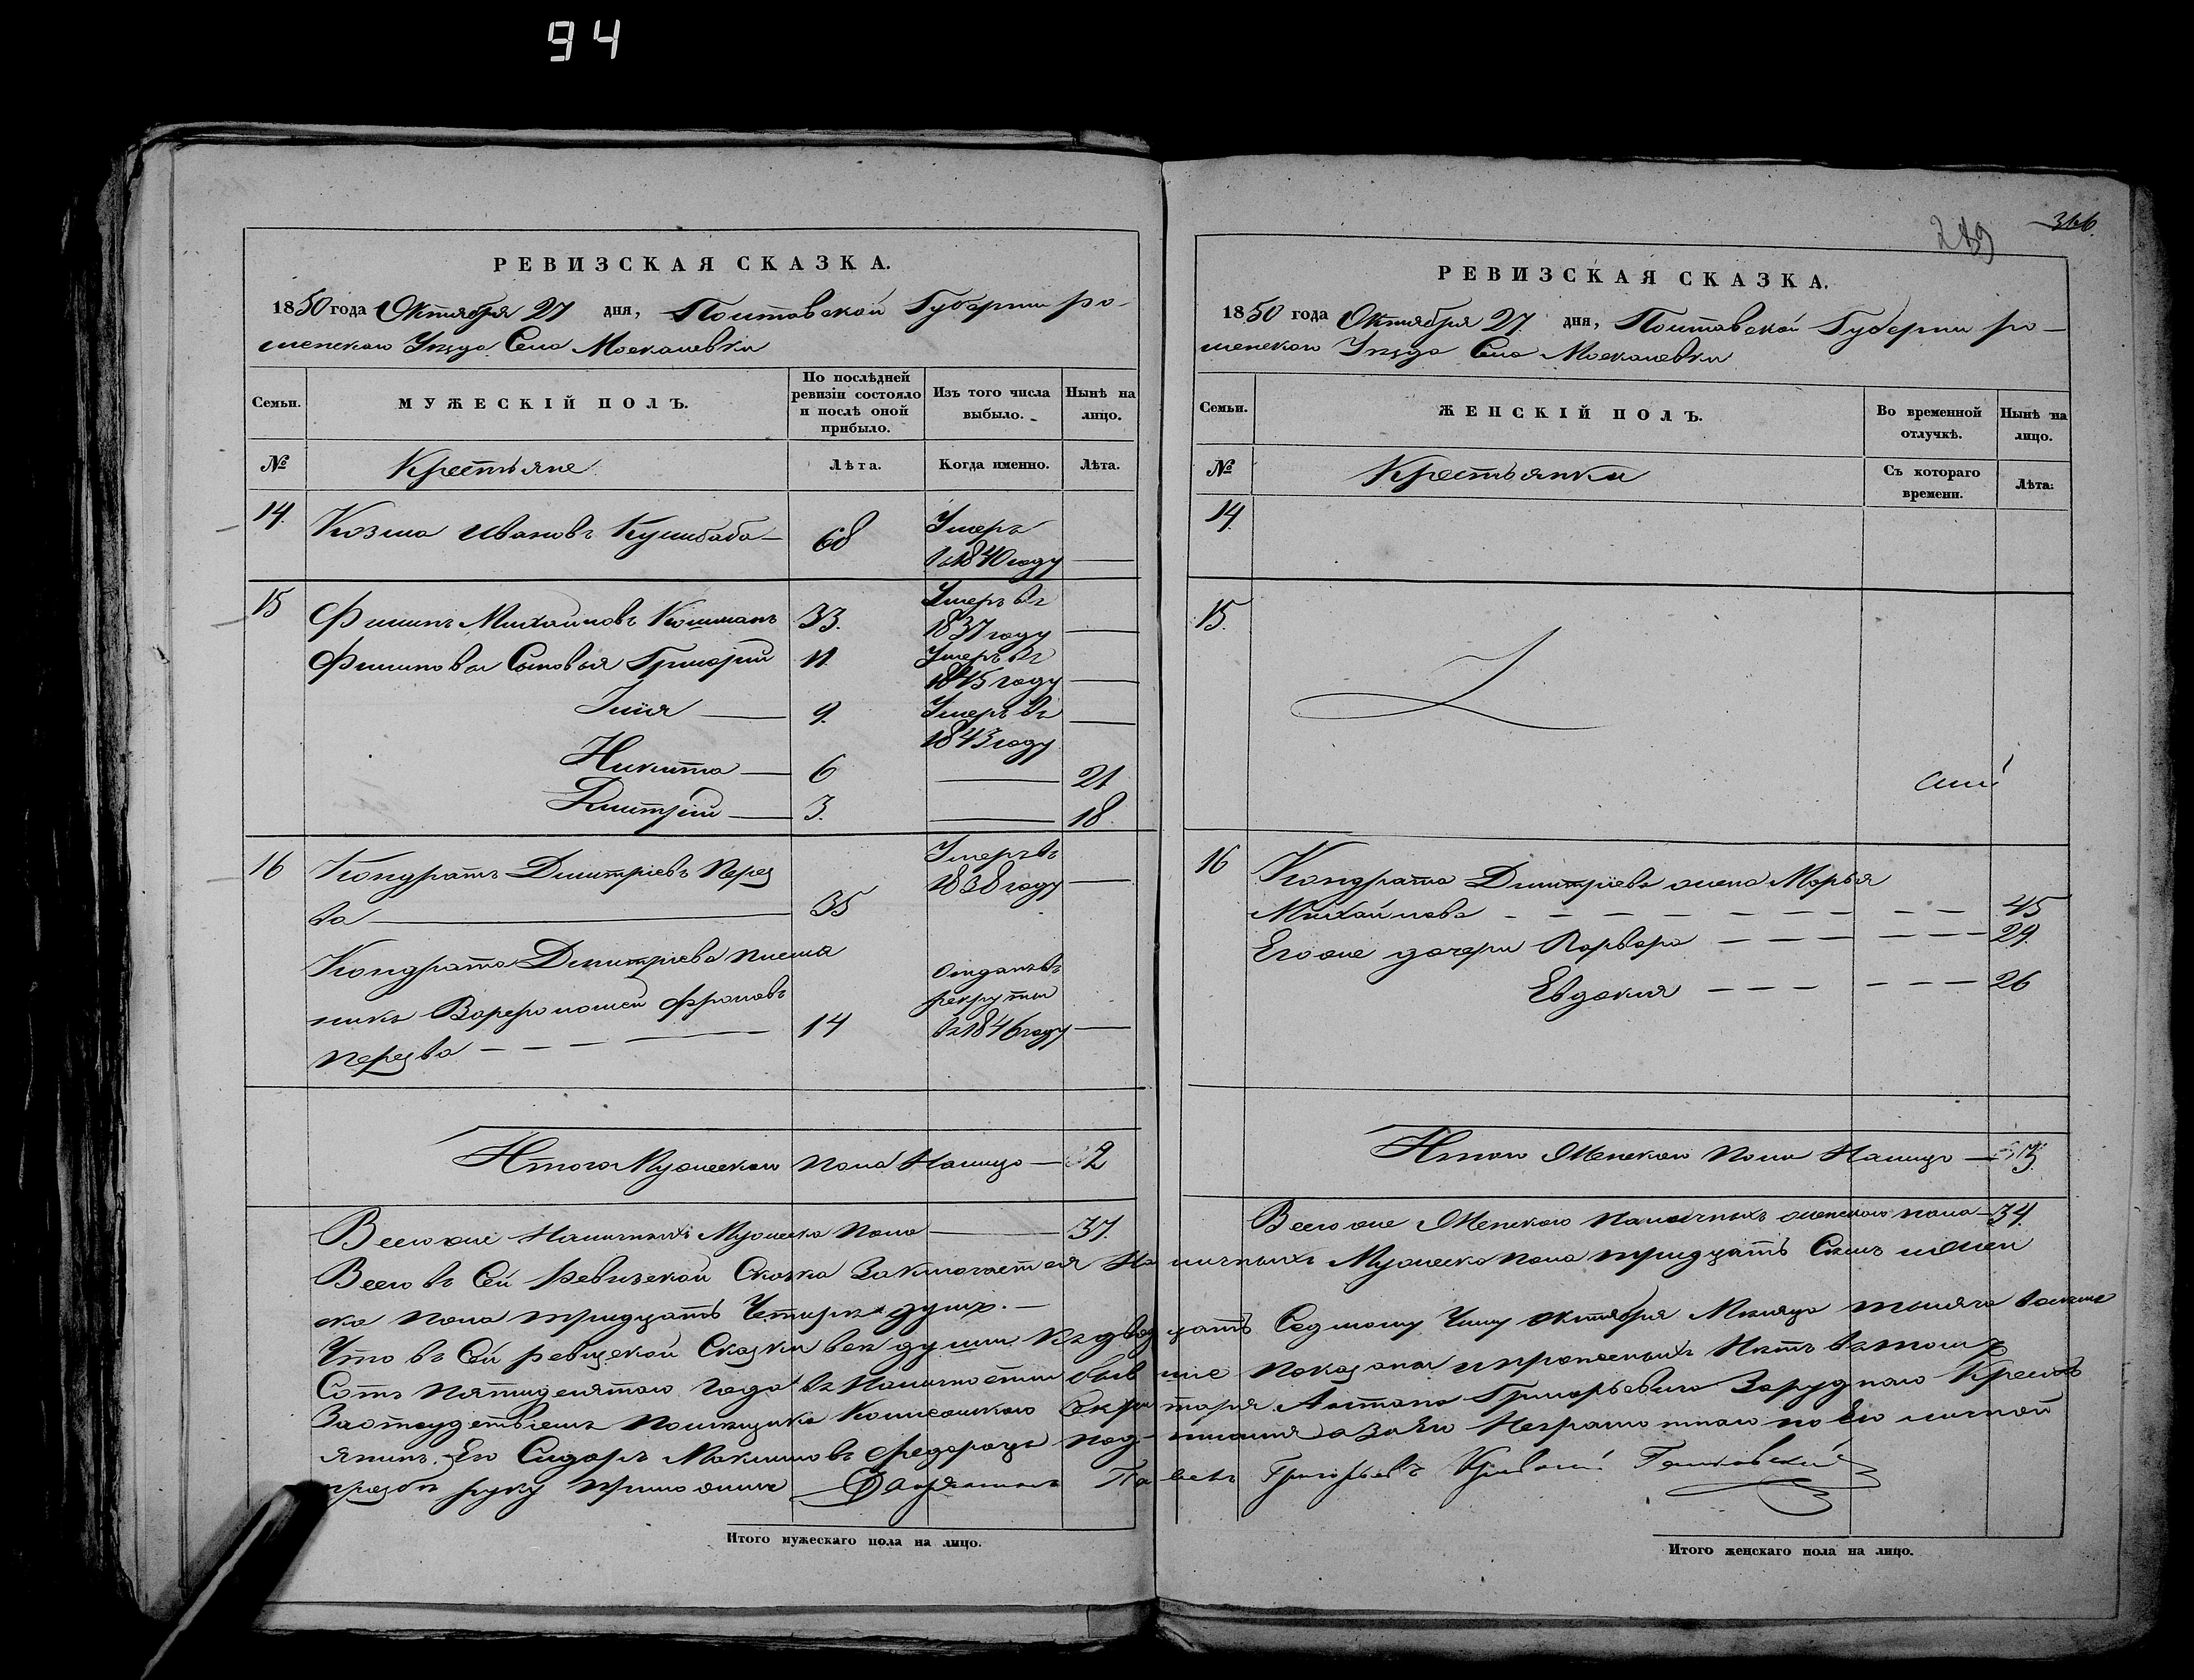 94
РЕВИЗСКАЯ СКАЗКА.
1850 года Октября 27 дня, Полтавской Губернии ро-
менского Уезда Села Москалевки
Семьи. МУЖЕСКІЙ ПОЛЪ. По послѣдней ревизіи состояло и послѣ оной прибыло. Изъ того числа выбыло. Нынѣ на лицо.
№ Крестьяне Лѣта. Когда именно. Лѣта.
14. Козма Ивановъ Кушбаба 68 Умеръ
въ 1840 году
15 Филипъ Михайловъ Кошманъ 33. Умеръ въ
1837 году
Филиповы Сыновья Григорий 11. Умеръ въ
1845 году
Илия 9. Умеръ въ
1843 году
Никита 6 21
Дмитрий 3. 18
16 Кондратъ Дмитріевъ Перез Умеръ въ
ва 35 1838 году
Кондрата Дмитріева племя
никъ Варфоломей Фроловъ Отданъ въ
рекруты
Перезва 14 въ 1846 году
Итого Мужеского пола Налицо 2
Всего же Наличныхъ Мужеска пола 37.
289 366
РЕВИЗСКАЯ СКАЗКА.
1850 года Октября 27. дня, Полтавской Губернии ро-
менского Уезда Села Москалевки
Семьи. ЖЕНСКІЙ ПОЛЪ. Во временной отлучкѣ. Нынѣ на лицо.
№ Крестьянки Съ котораго времени. Лѣта.
14.
15.
16 Кондрата Дмитріева жена Марья
Михайлова 45
Его же дочери Варвара 29.
Евдокия 26
Итого Женского пола Налицо 3
Всего же Женского Наличныхъ женского пола 34.
Всего въ Сей Ревизской Сказке Заключается Наличныхъ Мужеска пола тридцать Семь и женс
ка пола тридцать Четыре душъ.
Что въ Сей ревизской Сказки все души къ двадцать Седьмому Числу октября Месяца тысяча восемь
Сотъ пятидесятого Года въ Наличности бывшие показаны и пропесныхъ Нетъ въ томъ
За отсудствіемъ помещика Колежского Секретаря Антона Григорьевича Заруднаго Крестъ
янинъ Его Сидоръ Максимовъ Федорецъ под- а за Его Неграмотного по Его личной
прозбе руку приложилъ Дворянинъ Павелъ Григорьевъ
Итого мужескаго пола на лицо.
Итого женскаго пола на лицо.